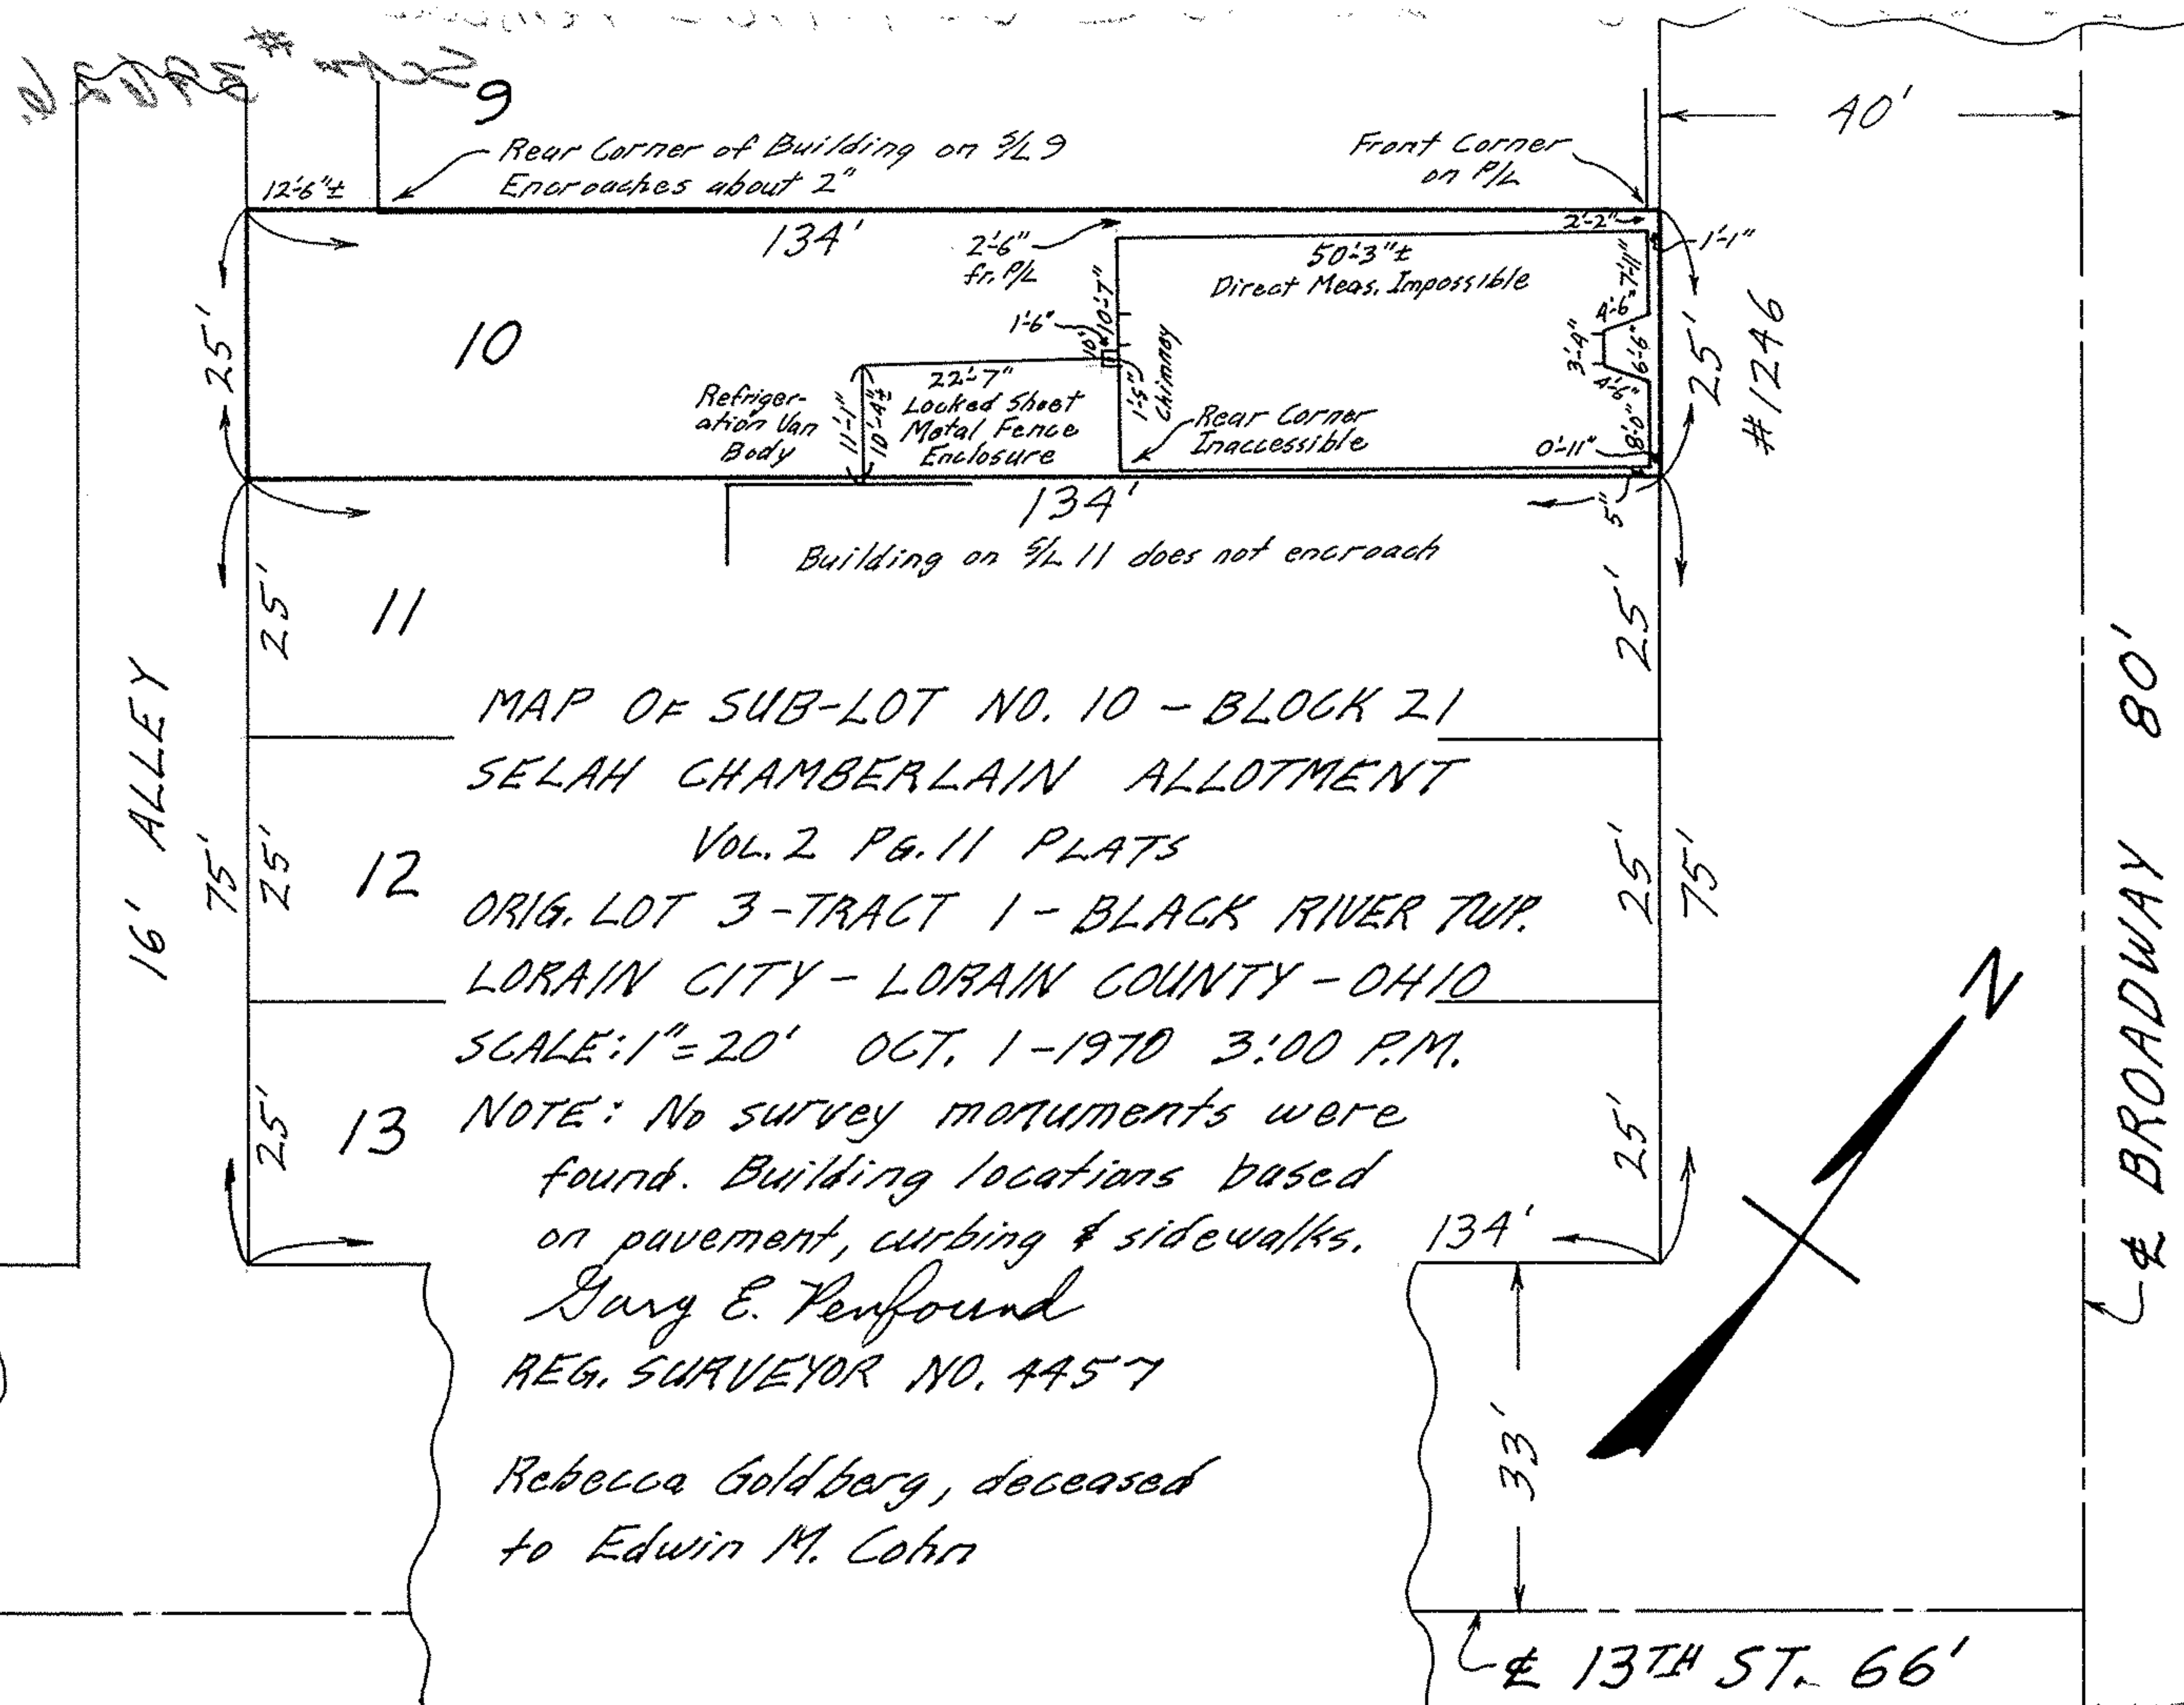 9
40'
Rear Corner of Building on S/L 9
Encroaches about 2"
Front Corner
on P/L
12'-6"±
134'
2'-6"
fr. P/L
2'-2"
1'-1"
50'-3"±
Direct Meas. Impossible
7'-11"
4'-6"
3'-4"
6'-6"
4'-6"
8'-0"
0'-11"
5"
10'-7"
1'-6"
10"
1'-5"
Chimney
25'
10
25'
#1246
22'-7"
Locked Sheet
Metal Fence
Enclosure
Refriger-
ation Van
Body
11'-1"
10'-4"±
Rear Corner
Inaccessible
134'
Building on S/L 11 does not encroach
25'
11
25'
16' ALLEY
75'
25'
12
25'
75'
25'
13
25'
MAP OF SUB-LOT NO. 10 - BLOCK 21
SELAH CHAMBERLAIN ALLOTMENT
VOL. 2 PG. 11 PLATS
ORIG. LOT 3 - TRACT 1 - BLACK RIVER TWP.
LORAIN CITY - LORAIN COUNTY - OHIO
SCALE: 1" = 20' OCT. 1 - 1970 3:00 P.M.
NOTE: No survey monuments were
found. Building locations based
on pavement, curbing & sidewalks.
134'
Gary E. Penfound
REG. SURVEYOR NO. 4457
Rebecca Goldberg, deceased
to Edwin M. Cohn
33'
N
℄ BROADWAY 80'
℄ 13TH ST. 66'